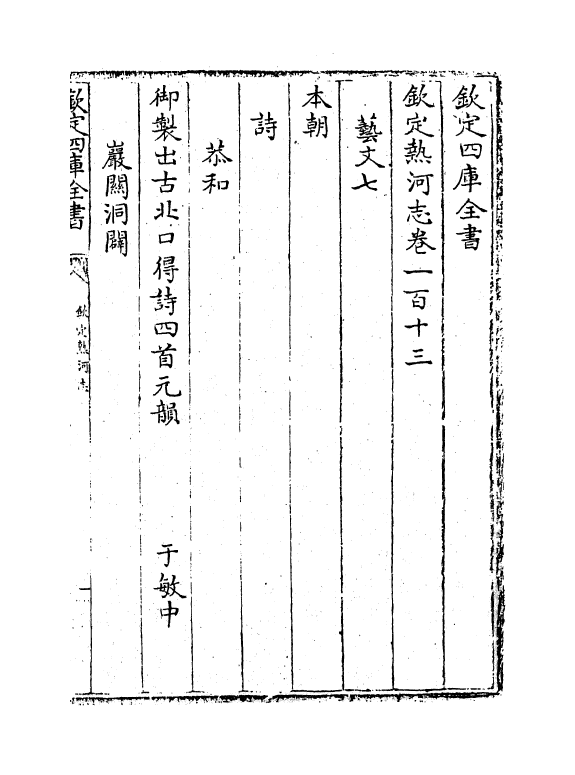 欽定四庫全書
欽定熱河志卷一百十三
藝文七
本朝
詩
恭和
御製出古北口得詩四首元韻 于敏中
巖關洞闢
欽定四庫全書
欽定熱河志
一